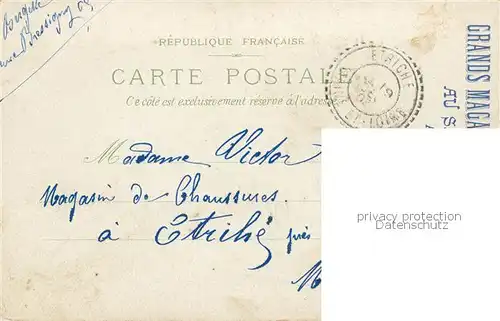 RÉPUBLIQUE FRANÇAISE
CARTE POSTALE
Ce côté est exclusivement réservé à l'adresse
ETRICHÉ
ET-LOIRE
GRANDS MAGA
AU S
Madame Victor
Magasin de Chaussures
à Etriché près
M
privacy protection
Datenschutz